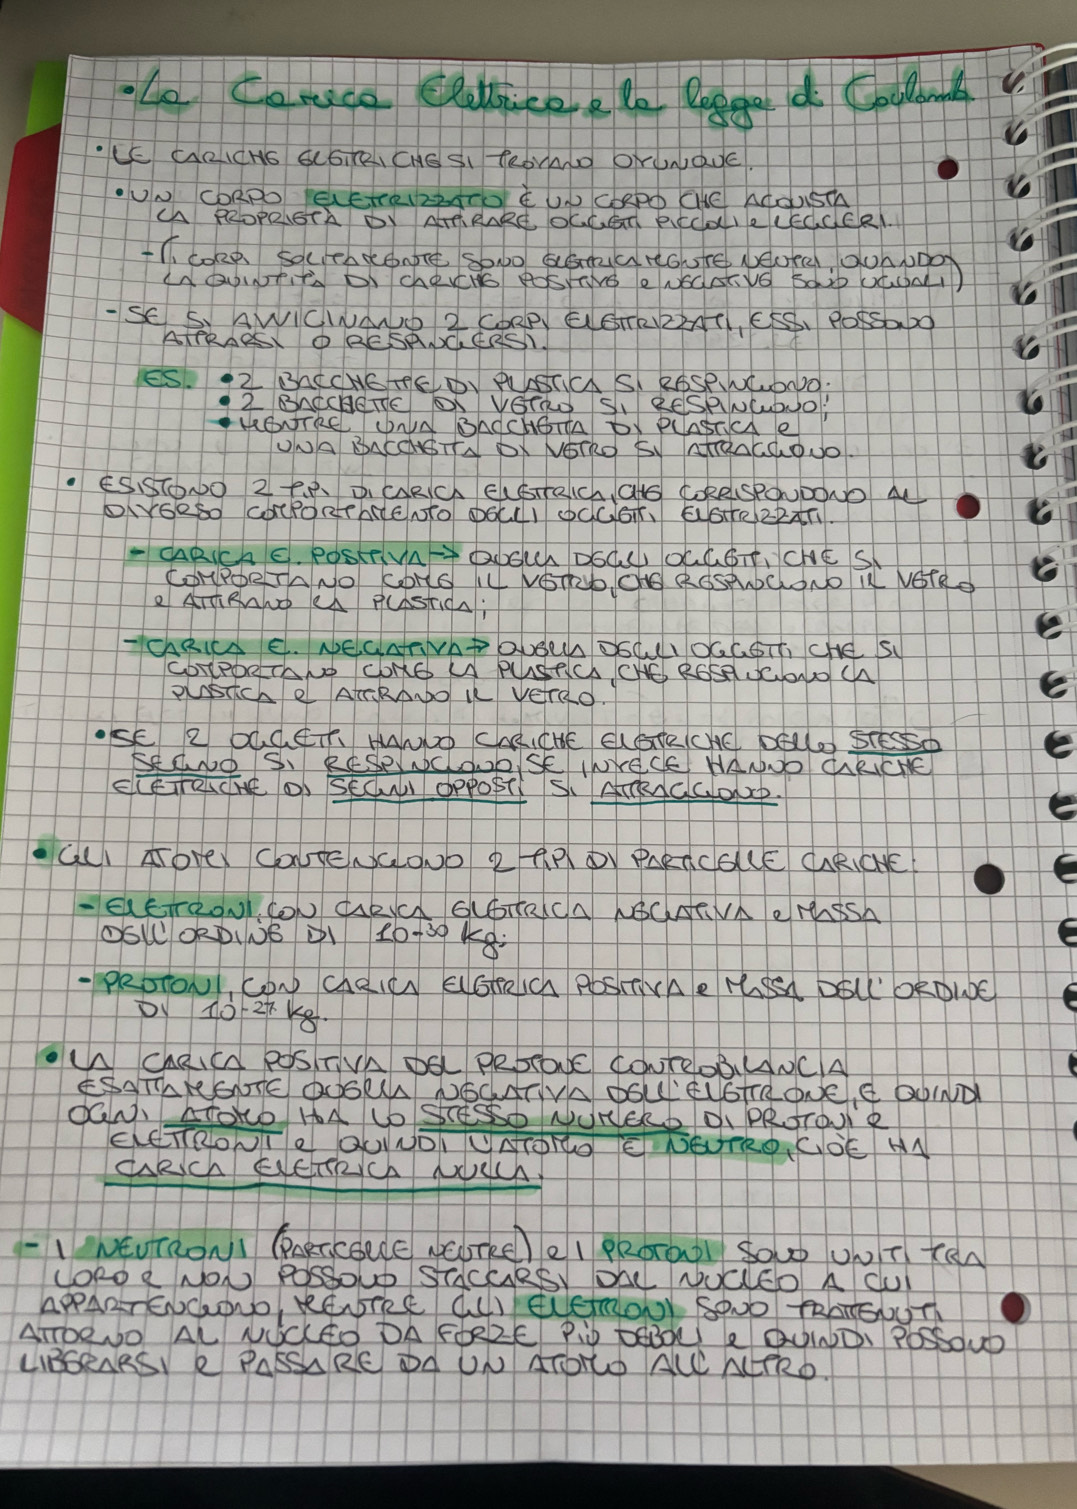 • La Carica Elettrica e la legge di Coulomb
• LE CARICHE ELETTRICHE SI TROVANO OVUNQUE.
• UN CORPO ELETTRIZZATO È UN CORPO CHE ACQUISTA
LA PROPRIETÀ DI ATTIRARE OGGETTI PICCOLI e LEGGERI.
- (I CORPI SOLITAMENTE SONO ELETTRICAMENTE NEUTRI, QUANDO
LA QUANTITÀ DI CARICHE POSITIVE e NEGATIVE SONO UGUALI)
- SE SI AVVICINANO 2 CORPI ELETTRIZZATI, ESSI POSSONO
ATTRARSI O RESPINGERSI.
ES. • 2 BACCHETTE DI PLASTICA SI RESPINGONO;
• 2 BACCHETTE DI VETRO SI RESPINGONO;
• MENTRE UNA BACCHETTA DI PLASTICA e
UNA BACCHETTA DI VETRO SI ATTRAGGONO.
• ESISTONO 2 TIPI DI CARICA ELETTRICA, CHE CORRISPONDONO AL
DIVERSO COMPORTAMENTO DEGLI OGGETTI ELETTRIZZATI.
- CARICA E. POSITIVA → QUELLA DEGLI OGGETTI, CHE SI
COMPORTANO COME IL VETRO, CHE RESPINGONO IL VETRO
e ATTIRANO LA PLASTICA;
- CARICA E. NEGATIVA → QUELLA DEGLI OGGETTI CHE SI
COMPORTANO COME LA PLASTICA, CHE RESPINGONO LA
PLASTICA e ATTIRANO IL VETRO.
• SE 2 OGGETTI HANNO CARICHE ELETTRICHE DELLO STESSO
SEGNO SI RESPINGONO, SE INVECE HANNO CARICHE
ELETTRICHE DI SEGNI OPPOSTI SI ATTRAGGONO.
• GLI ATOMI CONTENGONO 2 TIPI DI PARTICELLE CARICHE:
- ELETTRONI, CON CARICA ELETTRICA NEGATIVA e MASSA
DELL'ORDINE DI 10-30 kg;
- PROTONI, CON CARICA ELETTRICA POSITIVA e MASSA DELL'ORDINE
DI 10-27 kg.
• LA CARICA POSITIVA DEL PROTONE CONTROBILANCIA
ESATTAMENTE QUELLA NEGATIVA DELL'ELETTRONE, E QUINDI
OGNI ATOMO HA LO STESSO NUMERO DI PROTONI e
ELETTRONI e QUINDI L'ATOMO È NEUTRO, CIOÈ HA
CARICA ELETTRICA NULLA.
- I NEUTRONI (PARTICELLE NEUTRE) e I PROTONI SONO UNITI TRA
LORO e NON POSSONO STACCARSI DAL NUCLEO A CUI
APPARTENGONO, MENTRE GLI ELETTRONI SONO TRATTENUTI
ATTORNO AL NUCLEO DA FORZE PIÙ DEBOLI e QUINDI POSSONO
LIBERARSI e PASSARE DA UN ATOMO ALL'ALTRO.